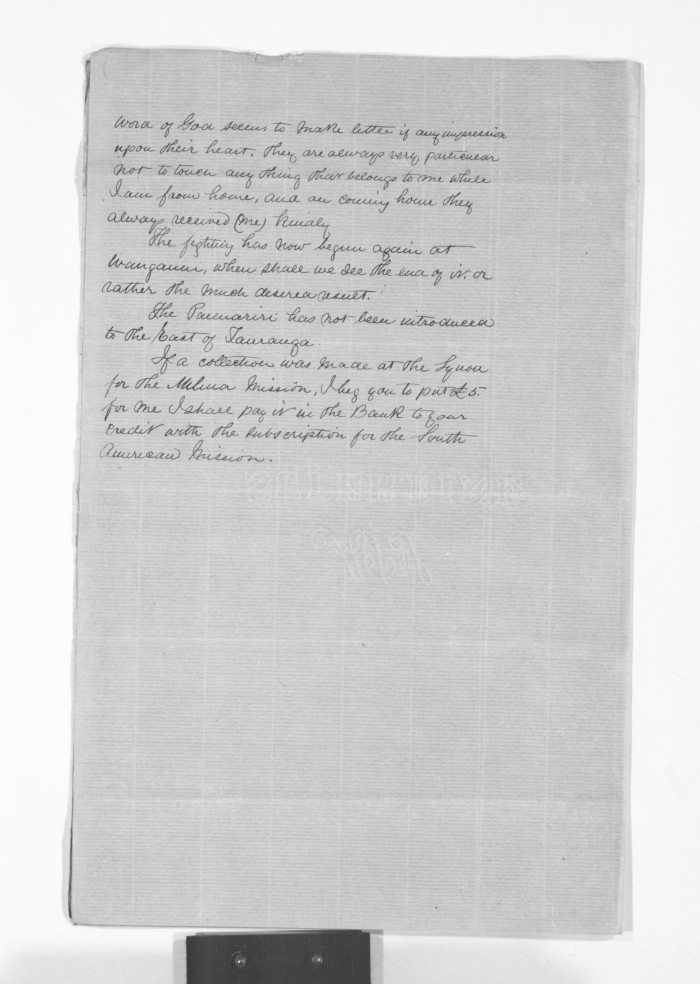 word of God seems to make little if any impression
upon their heart. They are always very particular
not to touch any thing that belongs to me while
I am from home, and on coming home they
always received (me) kindly
The fighting has now begun again at
Wanganui, when shall we see the end of it. or
rather the much desired result.
The Paimariri has not been introduced
to the East of Tauranga.
If a collection was made at the Synod
for the Milina Mission, I beg you to put £5.
for me I shall pay it in the Bank to your
credit with the subscription for the South
American Mission.